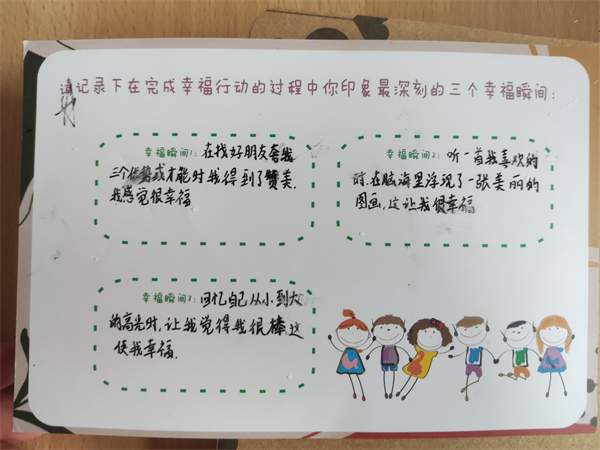 请记录下在完成幸福行动的过程中你印象最深刻的三个幸福瞬间：
幸福瞬间1：在找好朋友夸我
三个优势或才能时我得到了赞美，
我感觉很幸福
幸福瞬间2：听一首我喜欢的
时，在脑海里浮现了一张美丽的
图画，这让我很幸福
幸福瞬间3：回忆自己从小到大
的高光时，让我觉得我很棒这
使我幸福．